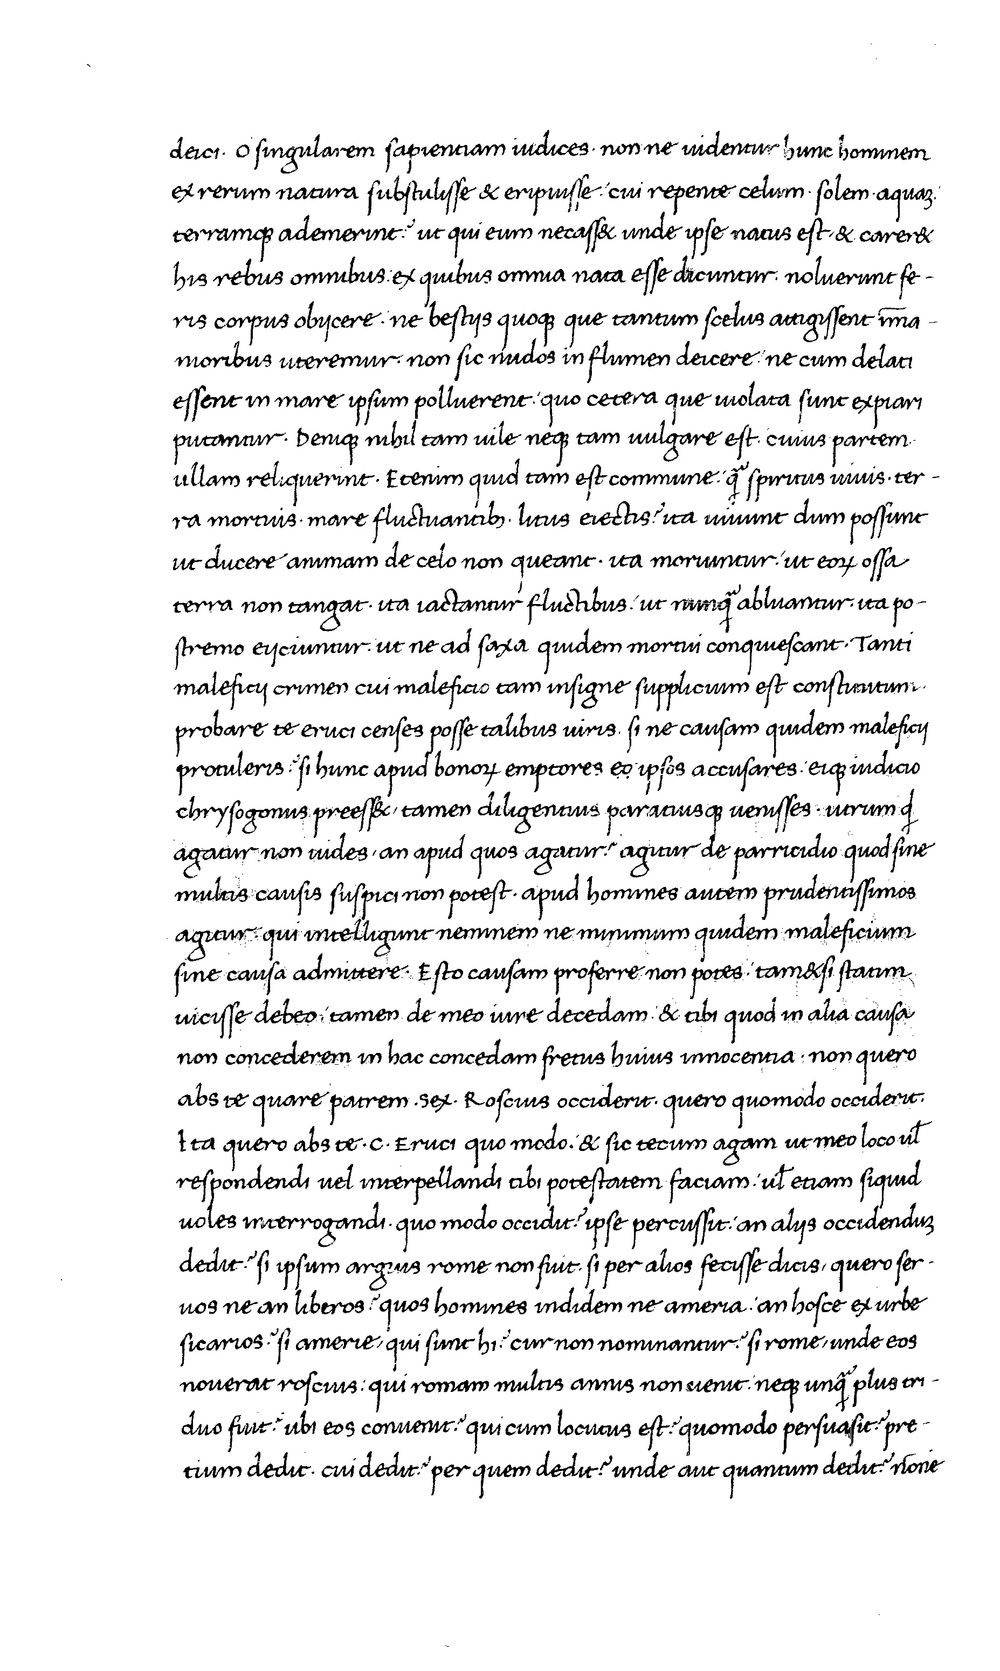 deici. O singularem sapientiam iudices. non ne uidentur hunc hominem
ex rerum natura substulisse & eripuisse: cui repente celum. solem. aquaꝫ.
terramqꝫ ademerint? ut qui eum necass& unde ipse natus est, & carer&
his rebus omnibus: ex quibus omnia nata esse dicuntur. noluerunt fe-
ris corpus obijcere. ne bestijs quoqꝫ que tantum scelus attigissent īm̄a-
moribus uteremur. non sic nudos in flumen deicere: ne cum delati
essent in mare ipsum polluerent: quo cetera que uiolata sunt expiari
putantur. Deniqꝫ nihil tam uile neqꝫ tam uulgare est. cuius partem
ullam reliquerint. Etenim quid tam est commune: q̄ spiritus uiuis. ter-
ra mortuis. mare fluctuantibꝫ. litus eiectis? ita uiuunt dum possunt
ut ducere animam de celo non queant. ita moriuntur: ut eoꝝ ossa
terra non tangat. ita iactantur fluctibus: ut nunq̄ abluantur. ita po-
stremo eijciuntur. ut ne ad saxa quidem mortui conquiescant. Tanti
maleficij crimen cui maleficio tam insigne supplicium est constitutum.
probare te eruci censes posse talibus uiris. si ne causam quidem maleficij
protuleris? si hunc apud bonoꝝ emptores eo ipsos accusares. eiqꝫ iudicio
chrysogonus preess&, tamen diligentius paratiusqꝫ uenisses. utrum qd
agatur non uides, an apud quos agatur? agitur de parricidio quod sine
multis causis suspici non potest. apud homines autem prudentissimos
agitur: qui intelligunt neminem ne minimum quidem maleficium
sine causa admittere. Esto causam proferre non potes. tam&si statim
uicisse debeo: tamen de meo iure decedam. & tibi quod in alia causa
non concederem in hac concedam fretus huius innocentia. non quero
abs te quare patrem. Sex. Roscius occiderit. quero quomodo occiderit.
Ita quero abs te. C. Eruci quo modo. & sic tecum agam ut meo loco ul̄
respondendi uel interpellandi tibi potestatem faciam: ul̄ etiam siquid
uoles interrogandi. quo modo occidit? ipse percussit: an alijs occidenduꝫ
dedit? si ipsum arguis rome non fuit. si per alios fecisse dicis, quero ser-
uos ne an liberos? quos homines indidem ne ameria: an hosce ex urbe
sicarios? si amerie, qui sunt hi? cur non nominantur? si rome, unde eos
nouerat roscius: qui romam multis annis non uenit. neqꝫ unq̄ plus tri-
duo fuit? ubi eos conuenit? qui cum locutus est? quomodo persuasit? pre-
tium dedit. cui dedit? per quem dedit? unde aut quantum dedit? nōne